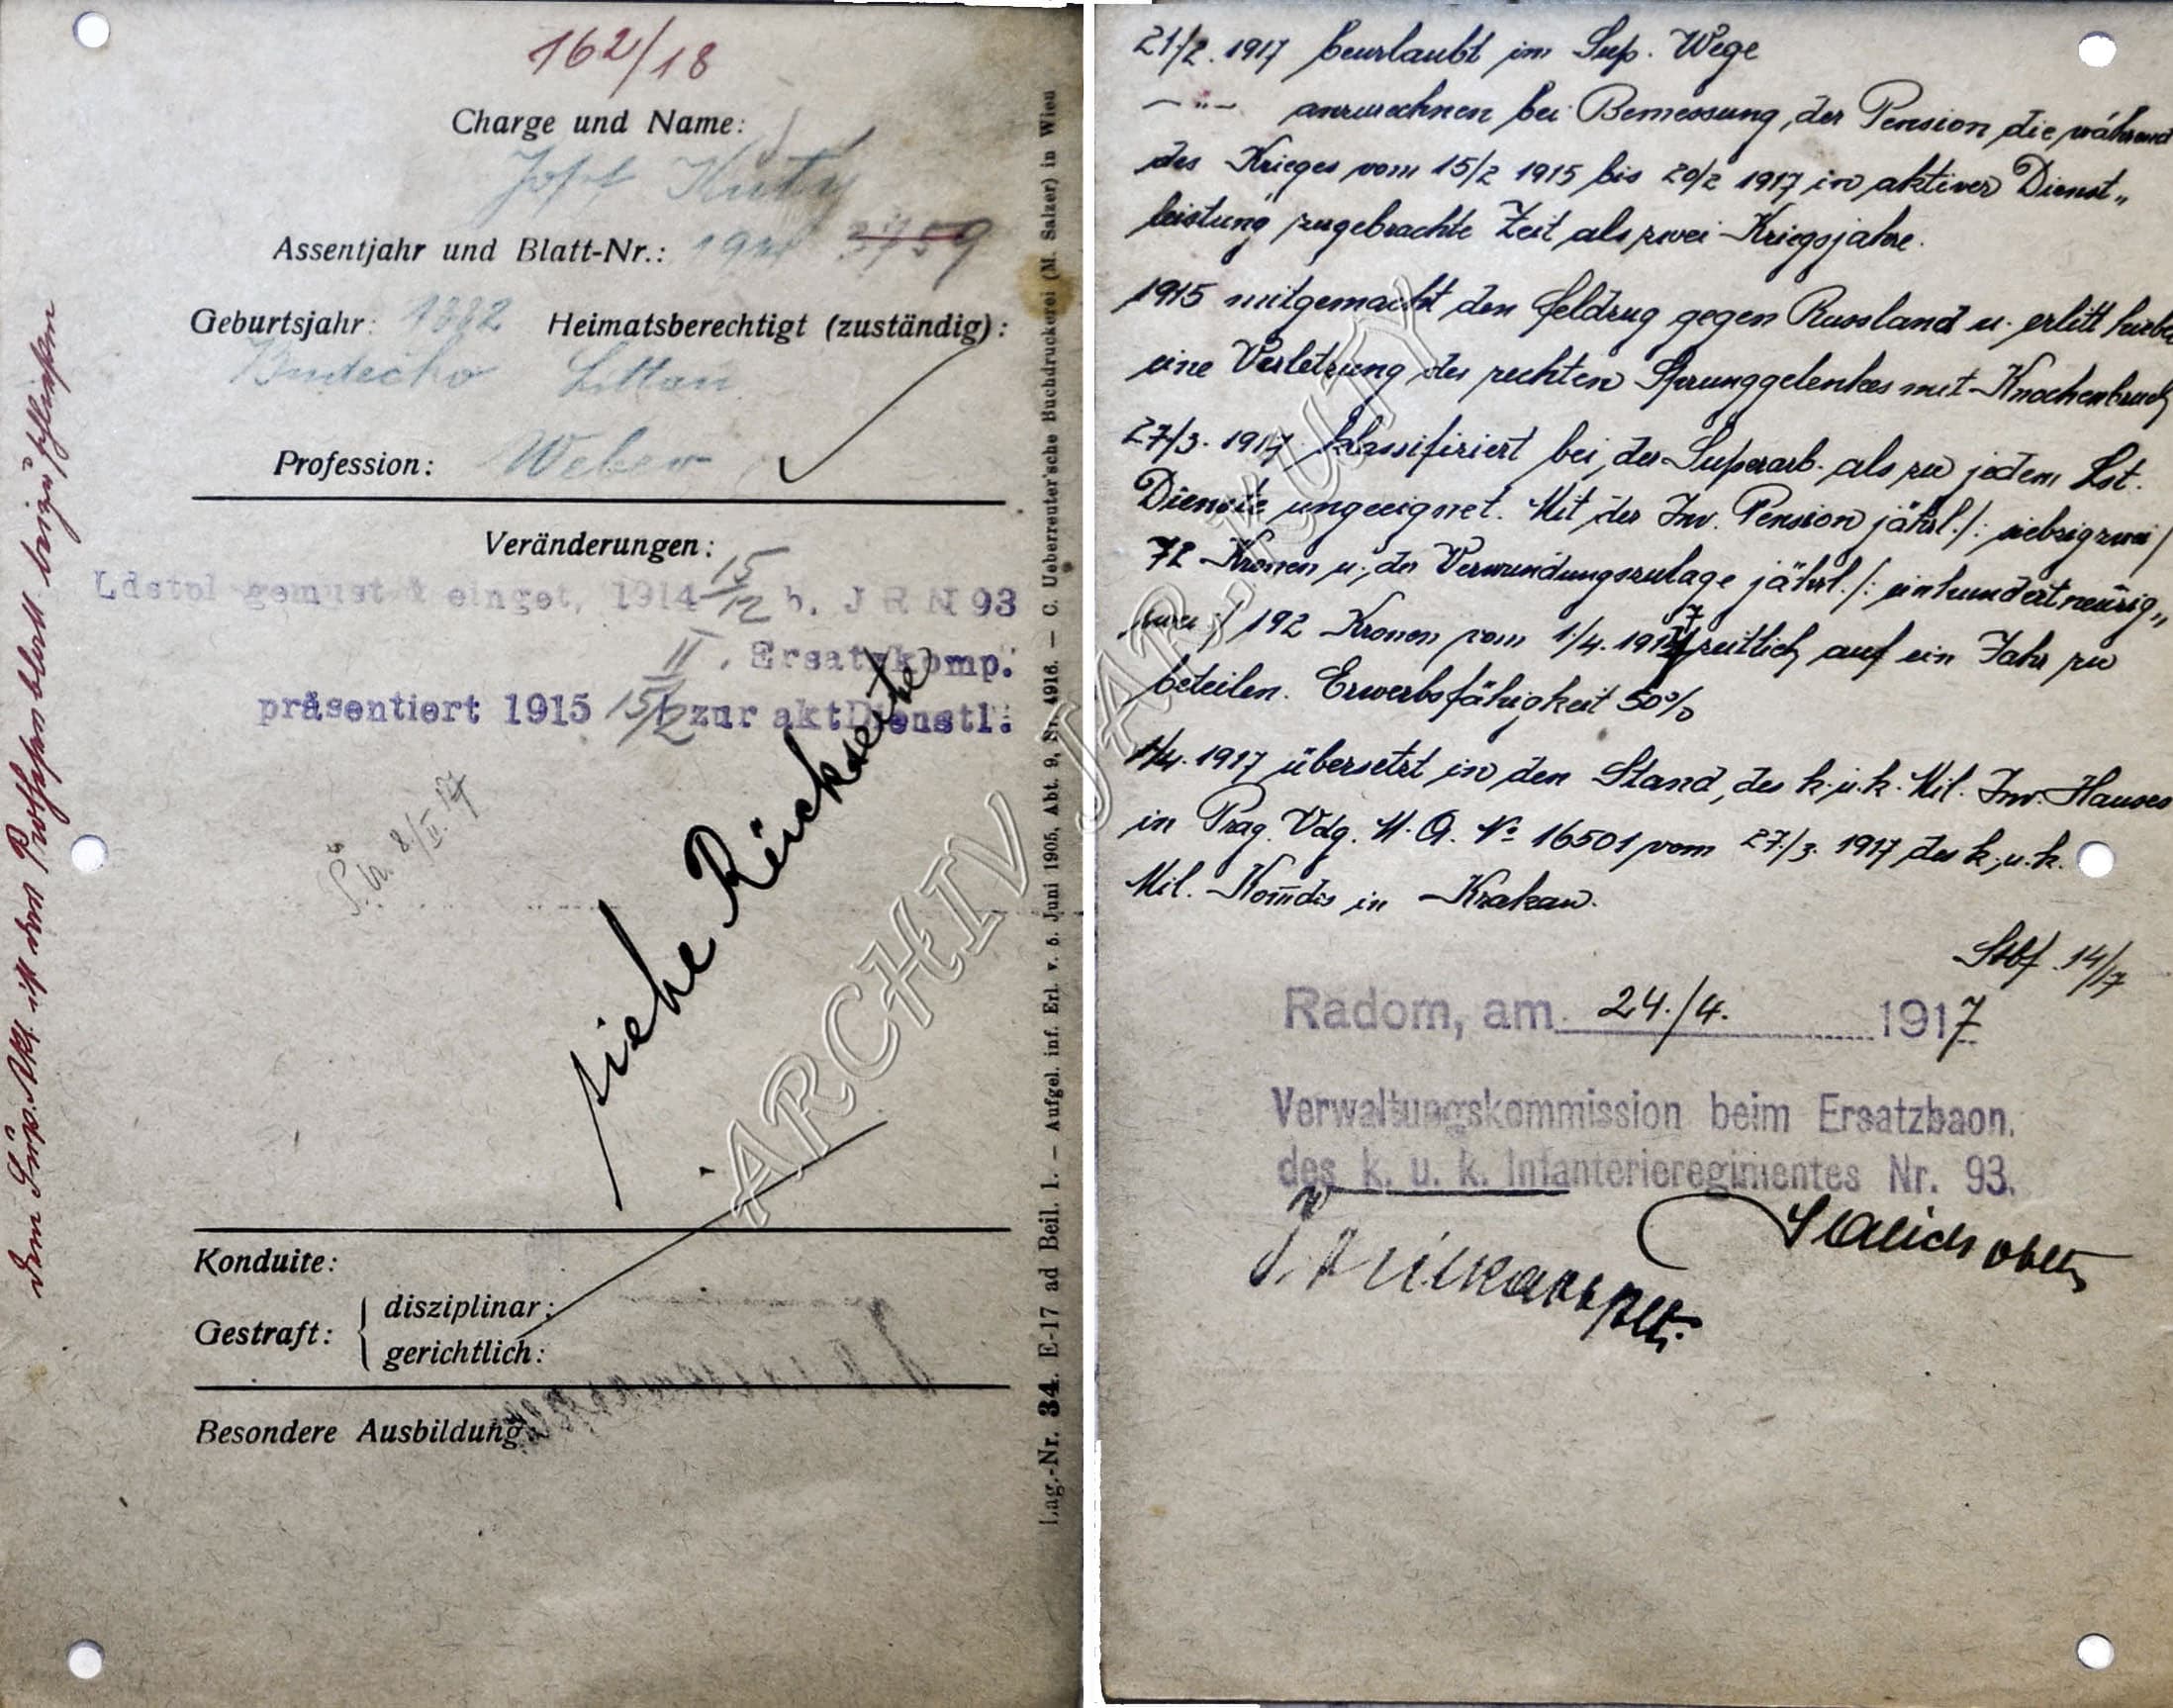 162/18
Charge und Name:
Josef Kutý
Assentjahr und Blatt-Nr.: 3759
Geburtsjahr: 1882 Heimatsberechtigt (zuständig):
Littau
Profession: Weber
Veränderungen:
Ldstpl gemust & einget, 1914 15/12 b. J R N 93
II. Ersatzkomp.
präsentiert 1915 15/2 zur akt Dienstl.
siehe Rückseite
Konduite:
Gestraft: disziplinar:
gerichtlich:
Besondere Ausbildung:
Lag.-Nr. 34. E-17 ad Beil. 1. — Aufgel. inf. Erl. v. 5. Juni 1905, Abt. 9, Nr. 4916. — C. Ueberreuter'sche Buchdruckerei (M. Salzer) in Wien
ARCHIV JAR. KUTÝ
21/2. 1917 beurlaubt im Sup. Wege
— " — anzurechnen bei Bemessung der Pension die während
des Krieges vom 15/2 1915 bis 20/2 1917 in aktiver Dienst„
leistung zugebrachte Zeit als zwei Kriegsjahre.
1915 mitgemacht den Feldzug gegen Russland u. erlitt hiebei
eine Verletzung des rechten Sprunggelenkes mit Knochenbruch
27/3. 1917 klassifiziert bei der Superarb. als zu jedem Lst.
Dienste ungeeignet. Mit der Inv. Pension jährl. /: siebzigzwei /
72 Kronen u. der Verwundungszulage jährl. /: einhundertneunzig„
zwei :/ 192 Kronen vom 1./4. 1917 zeitlich auf ein Jahr zu
beteilen. Erwerbsfähigkeit 50%
1/4. 1917 übersetzt in den Stand des k. u. k. Mil. Inv. Hauses
in Prag. Vdg. M. A. No 16501 vom 27./3. 1917 des k. u. k.
Mil. Kom̄dos in Krakau.
Stbf. 14/17
Radom, am 24./4. 1917
Verwaltungskommission beim Ersatzbaon.
des k. u. k. Infanterieregimentes Nr. 93.